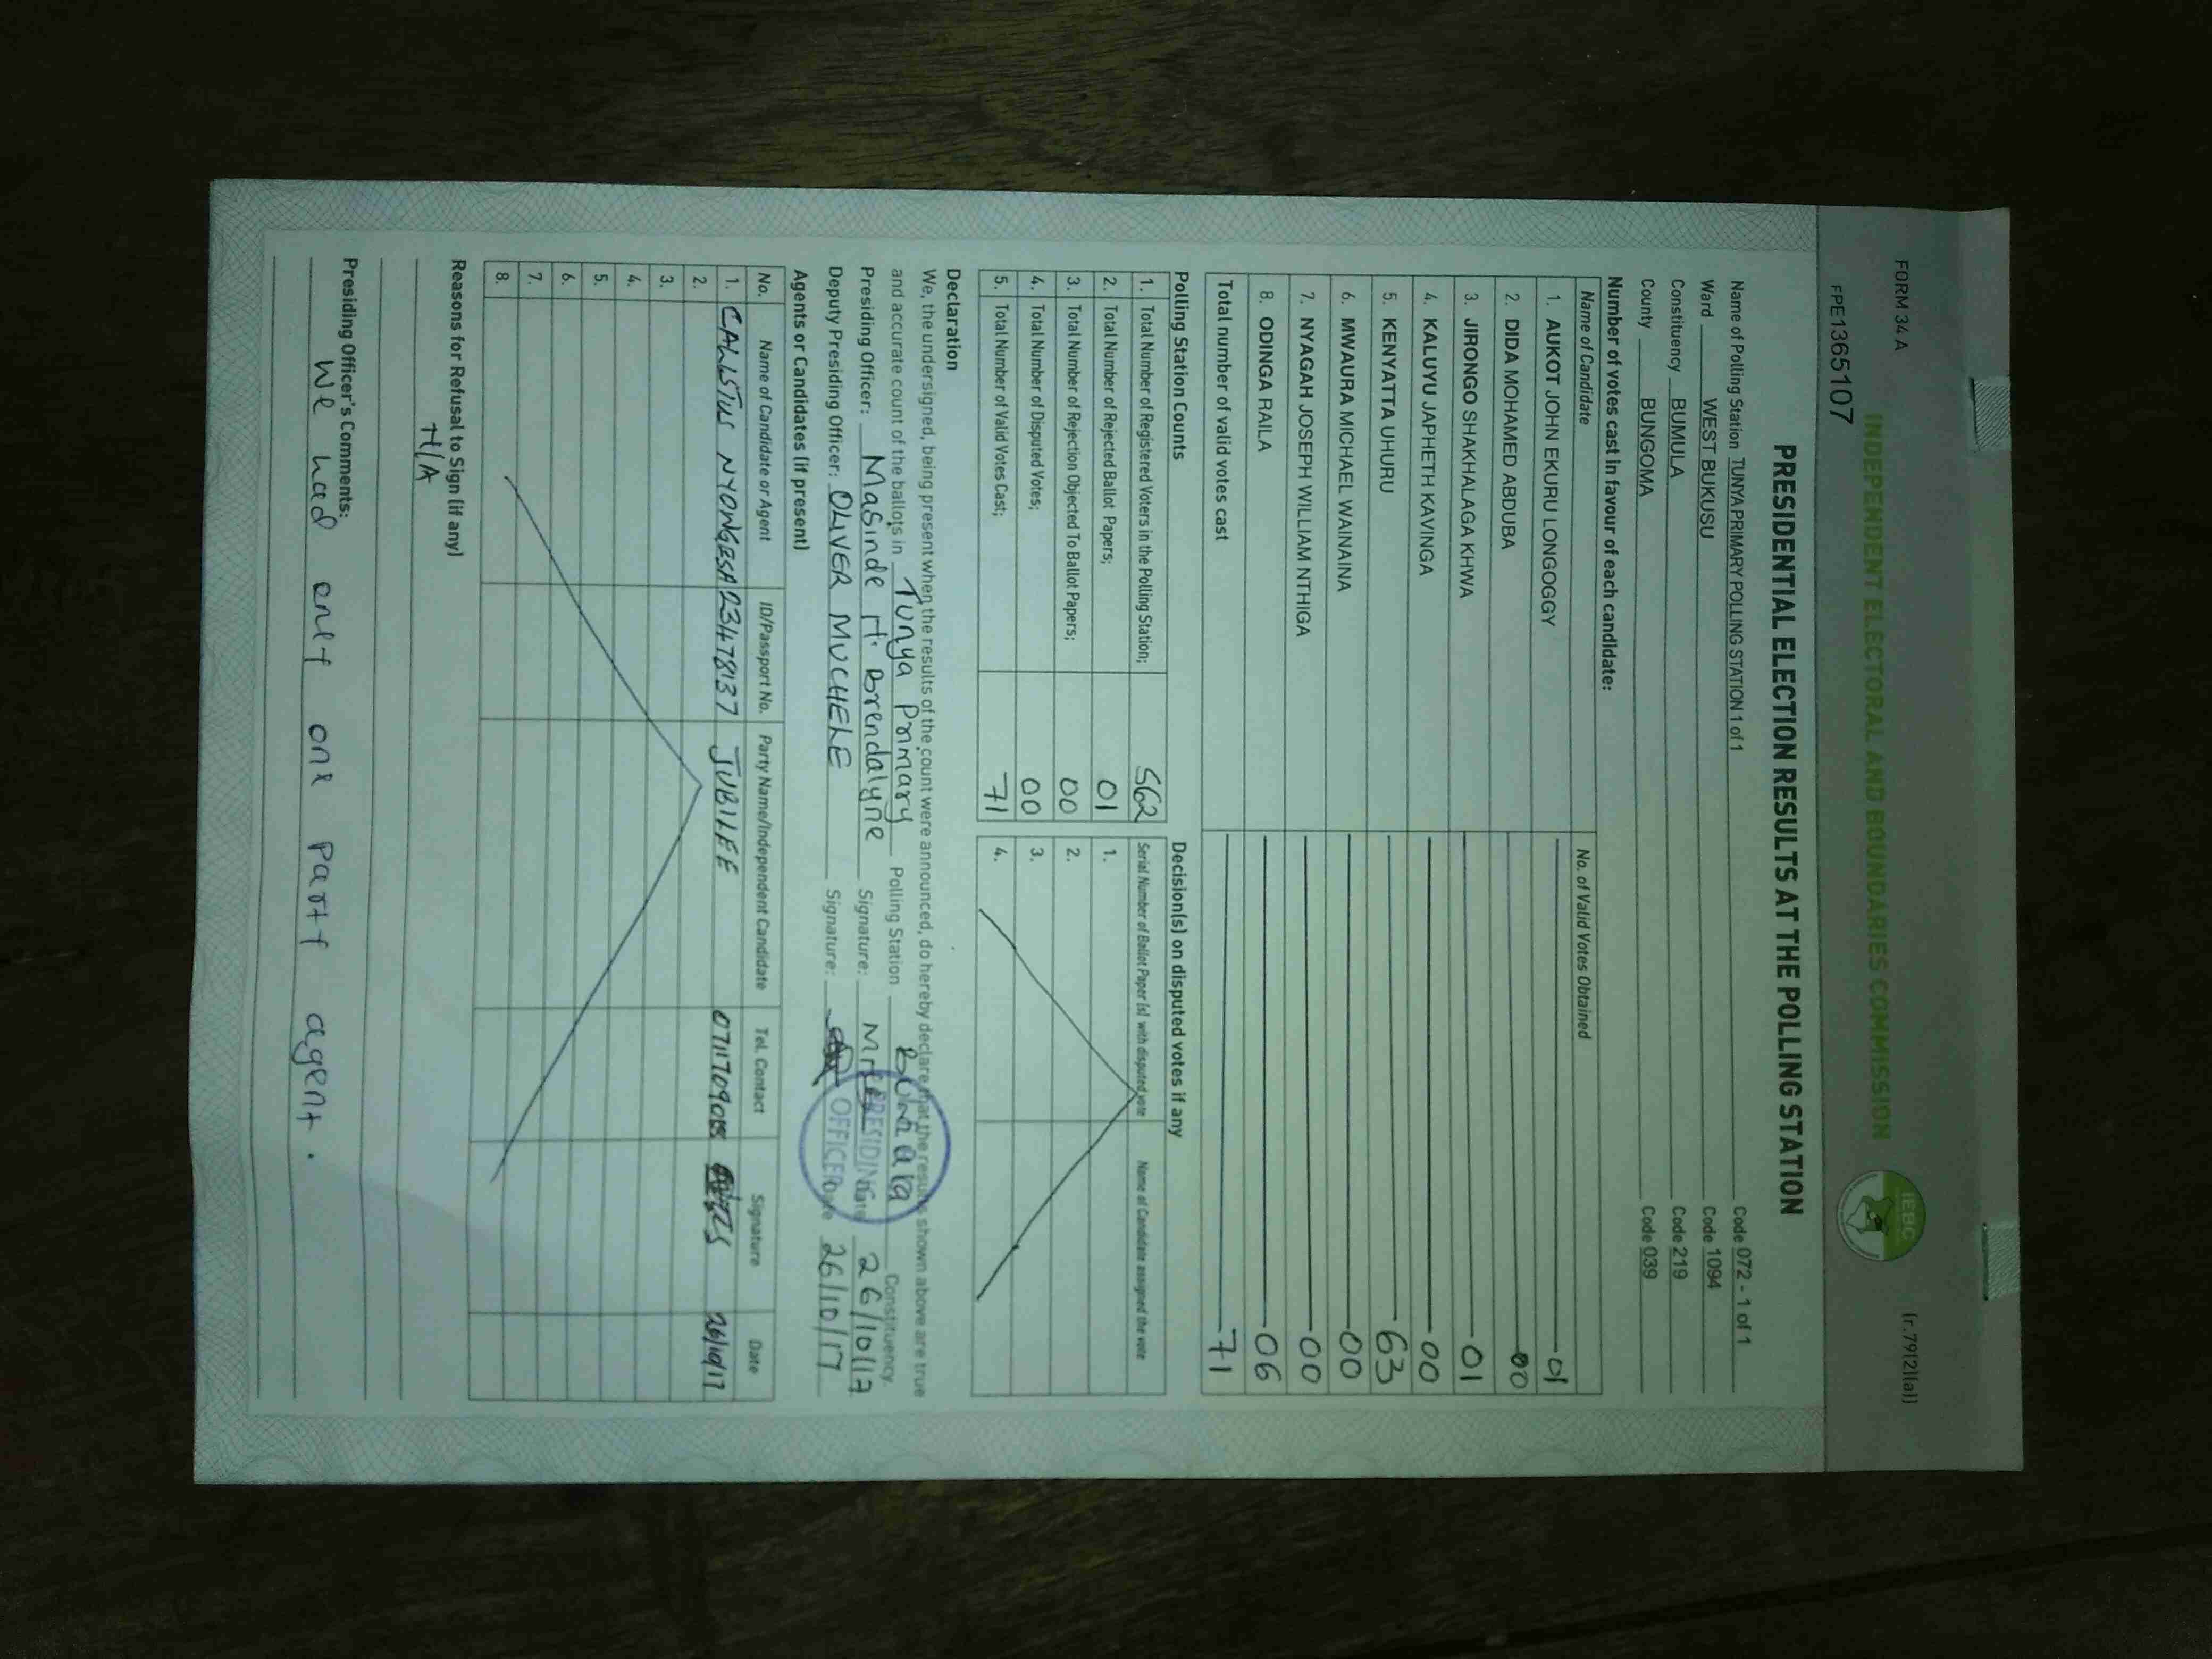 FORM 34 A
(r.79(2)(a))
INDEPENDENT ELECTORAL AND BOUNDARIES COMMISSION
IEBC
FPE1365107
PRESIDENTIAL ELECTION RESULTS AT THE POLLING STATION
Name of Polling Station TUNYA PRIMARY POLLING STATION 1 of 1 Code 072 - 1 of 1
Ward WEST BUKUSU Code 1094
Constituency BUMULA Code 219
County BUNGOMA Code 039
Number of votes cast in favour of each candidate:
Name of Candidate No. of Valid Votes Obtained
1. AUKOT JOHN EKURU LONGOGGY 01
2. DIDA MOHAMED ABDUBA 00
3. JIRONGO SHAKHALAGA KHWA 01
4. KALUYU JAPHETH KAVINGA 00
5. KENYATTA UHURU 63
6. MWAURA MICHAEL WAINAINA 00
7. NYAGAH JOSEPH WILLIAM NTHIGA 00
8. ODINGA RAILA 06
Total number of valid votes cast 71
Polling Station Counts
1. Total Number of Registered Voters in the Polling Station; 562
2. Total Number of Rejected Ballot Papers; 01
3. Total Number of Rejection Objected To Ballot Papers; 00
4. Total Number of Disputed Votes; 00
5. Total Number of Valid Votes Cast; 71
Decision(s) on disputed votes if any
Serial Number of Ballot Paper (s) with disputed vote Name of Candidate assigned the vote
1.
2.
3.
4.
Declaration
We, the undersigned, being present when the results of the count were announced, do hereby declare that the results shown above are true
and accurate count of the ballots in Tunya Primary Polling Station Bumula Constituency.
Presiding Officer: Masinde Brendalyne Signature: Date 26/10/17
Deputy Presiding Officer: OLIVER MUCHELE Signature: Date 26/10/17
PRESIDING
OFFICER
Agents or Candidates (if present)
No. Name of Candidate or Agent ID/Passport No. Party Name/Independent Candidate Tel. Contact Signature Date
1. CALISTUS NYONGESA 23478137 JUBILEE 26/10/17
2.
3.
4.
5.
6.
7.
8.
Reasons for Refusal to Sign (if any)
N/A
Presiding Officer's Comments:
We had only one party agent.